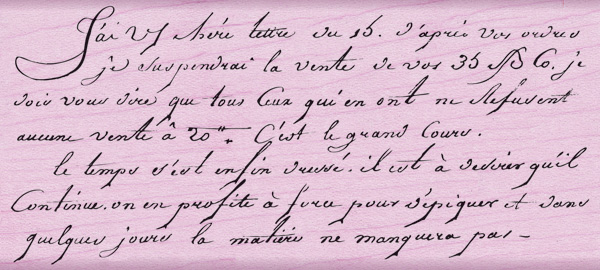 J'ai Vs chère lettre du 15. d'après vos ordres
je suspendrai la vente de vos 35 Co. je
dois vous dire que tous Ceux qui en ont ne Refusent
aucune vente â 20 C'est le grand Cours.
le temps s'est enfin dressé. il est à desirer qu'il
Continue. on en profite à force pour dépiquer et dans
quelques jours la matière ne manquera pas –